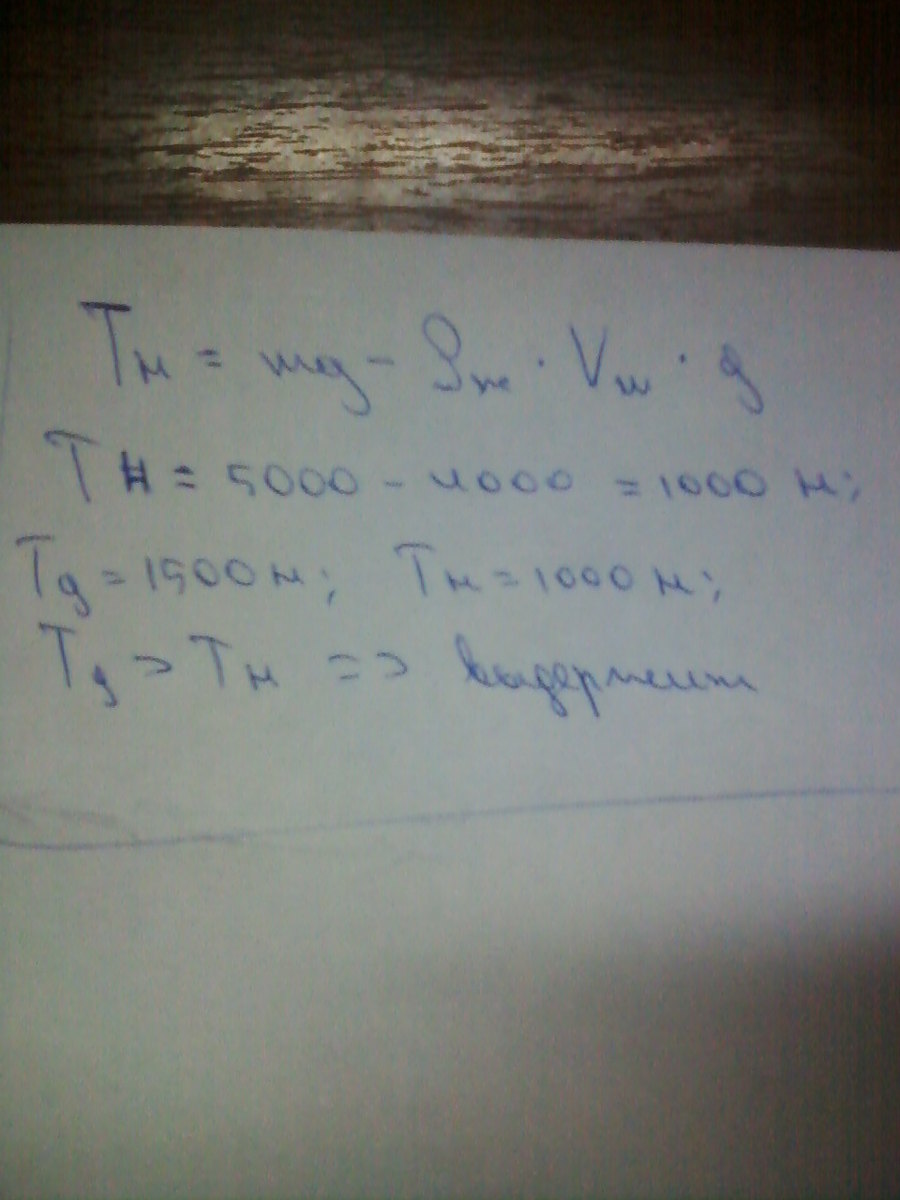 Tн = mg - ρж · Vш · g
Tн = 5000 - 4000 = 1000 н;
Tg = 1500 н; Tн = 1000 н;
Tg > Tн => выдержит